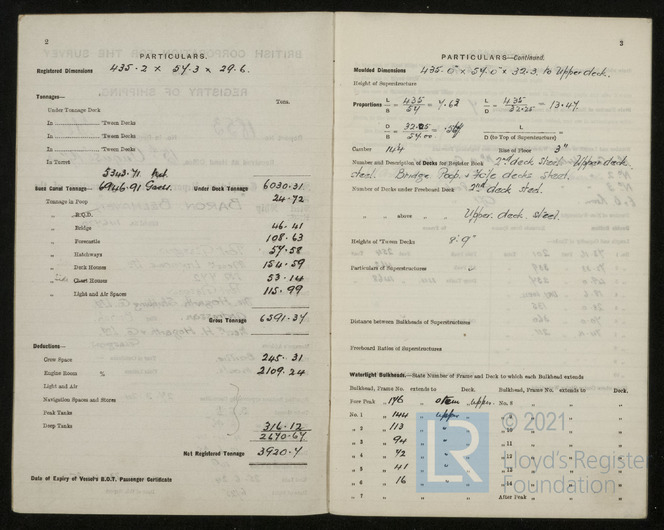 2
PARTICULARS.
Registered Dimensions 435.2 x 57.3 x 29.6.
Tonnages—
Tons.
Under Tonnage Deck
In 'Tween Decks
In 'Tween Decks
In 'Tween Decks
In Turret
5343.71 Net.
Suez Canal Tonnage— 6946.91 Gross. Under Deck Tonnage 6030.31
Tonnage in Poop 24.72
„ R.Q.D.
„ Bridge 46.41
„ Forecastle 108.63
„ Hatchways 57.58
„ Deck Houses 154.59
„ Side Chart Houses 53.14
„ Light and Air Spaces 115.99
Gross Tonnage 6591.37
Deductions—
Crew Space 245.31
Engine Room % 2109.24
Light and Air
Navigation Spaces and Stores
Peak Tanks
Deep Tanks 316.12
2670.67
Net Registered Tonnage 3920.7
Date of Expiry of Vessel's B.O.T. Passenger Certificate
3
PARTICULARS—Continued.
Moulded Dimensions 435.0" x 57.0" x 32.3. to Upper deck.
Height of Superstructure
Proportions L/B = 435/57 = 7.63 L/D = 435/32.25 = 13.47
D/B = 32.25/57.00 = L/D (to Top of Superstructure) =
Camber 14 Rise of Floor 3"
Number and Description of Decks for Register Book 2nd deck steel Upper deck
steel. Bridge Poop & Fo'c'le decks steel.
Number of Decks under Freeboard Deck 2nd deck steel.
„ „ above „ Upper deck steel.
Heights of 'Tween Decks 8'.9"
Particulars of Superstructures
Distance between Bulkheads of Superstructures
Freeboard Ratios of Superstructures
Watertight Bulkheads.—State Number of Frame and Deck to which each Bulkhead extends
Bulkhead, Frame No. extends to Deck. Bulkhead, Frame No. extends to Deck.
Fore Peak „ 176 Upper. No. 8 „ „
No. 1 „ 144 Upper „ 9
„ 2 „ 113 „ „ 10
„ 3 „ 94 „ „ 11
„ 4 „ 72 „ „ 12
„ 5 „ 41 „ „ 13
„ 6 „ 16 „ „ 14
„ 7 „ „ After Peak „ „
LR
© 2021
Lloyd's Register
Foundation